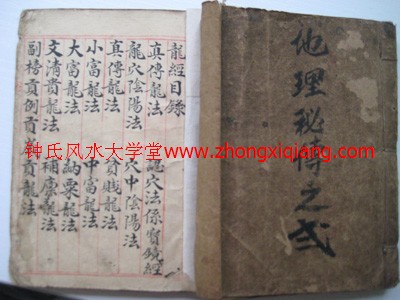 地理秘傳之弍
龍經目錄
真傳龍法 穴法係寶鏡經
龍穴陰陽法 穴中陰陽法
真傳龍法 賤龍法
小富龍法 中富龍法
大富龍法 納粟龍法
文清貴龍法 補廩龍法
副榜貢例貢貢龍法
钟氏风水大学堂 www.zhongxiqiang.com